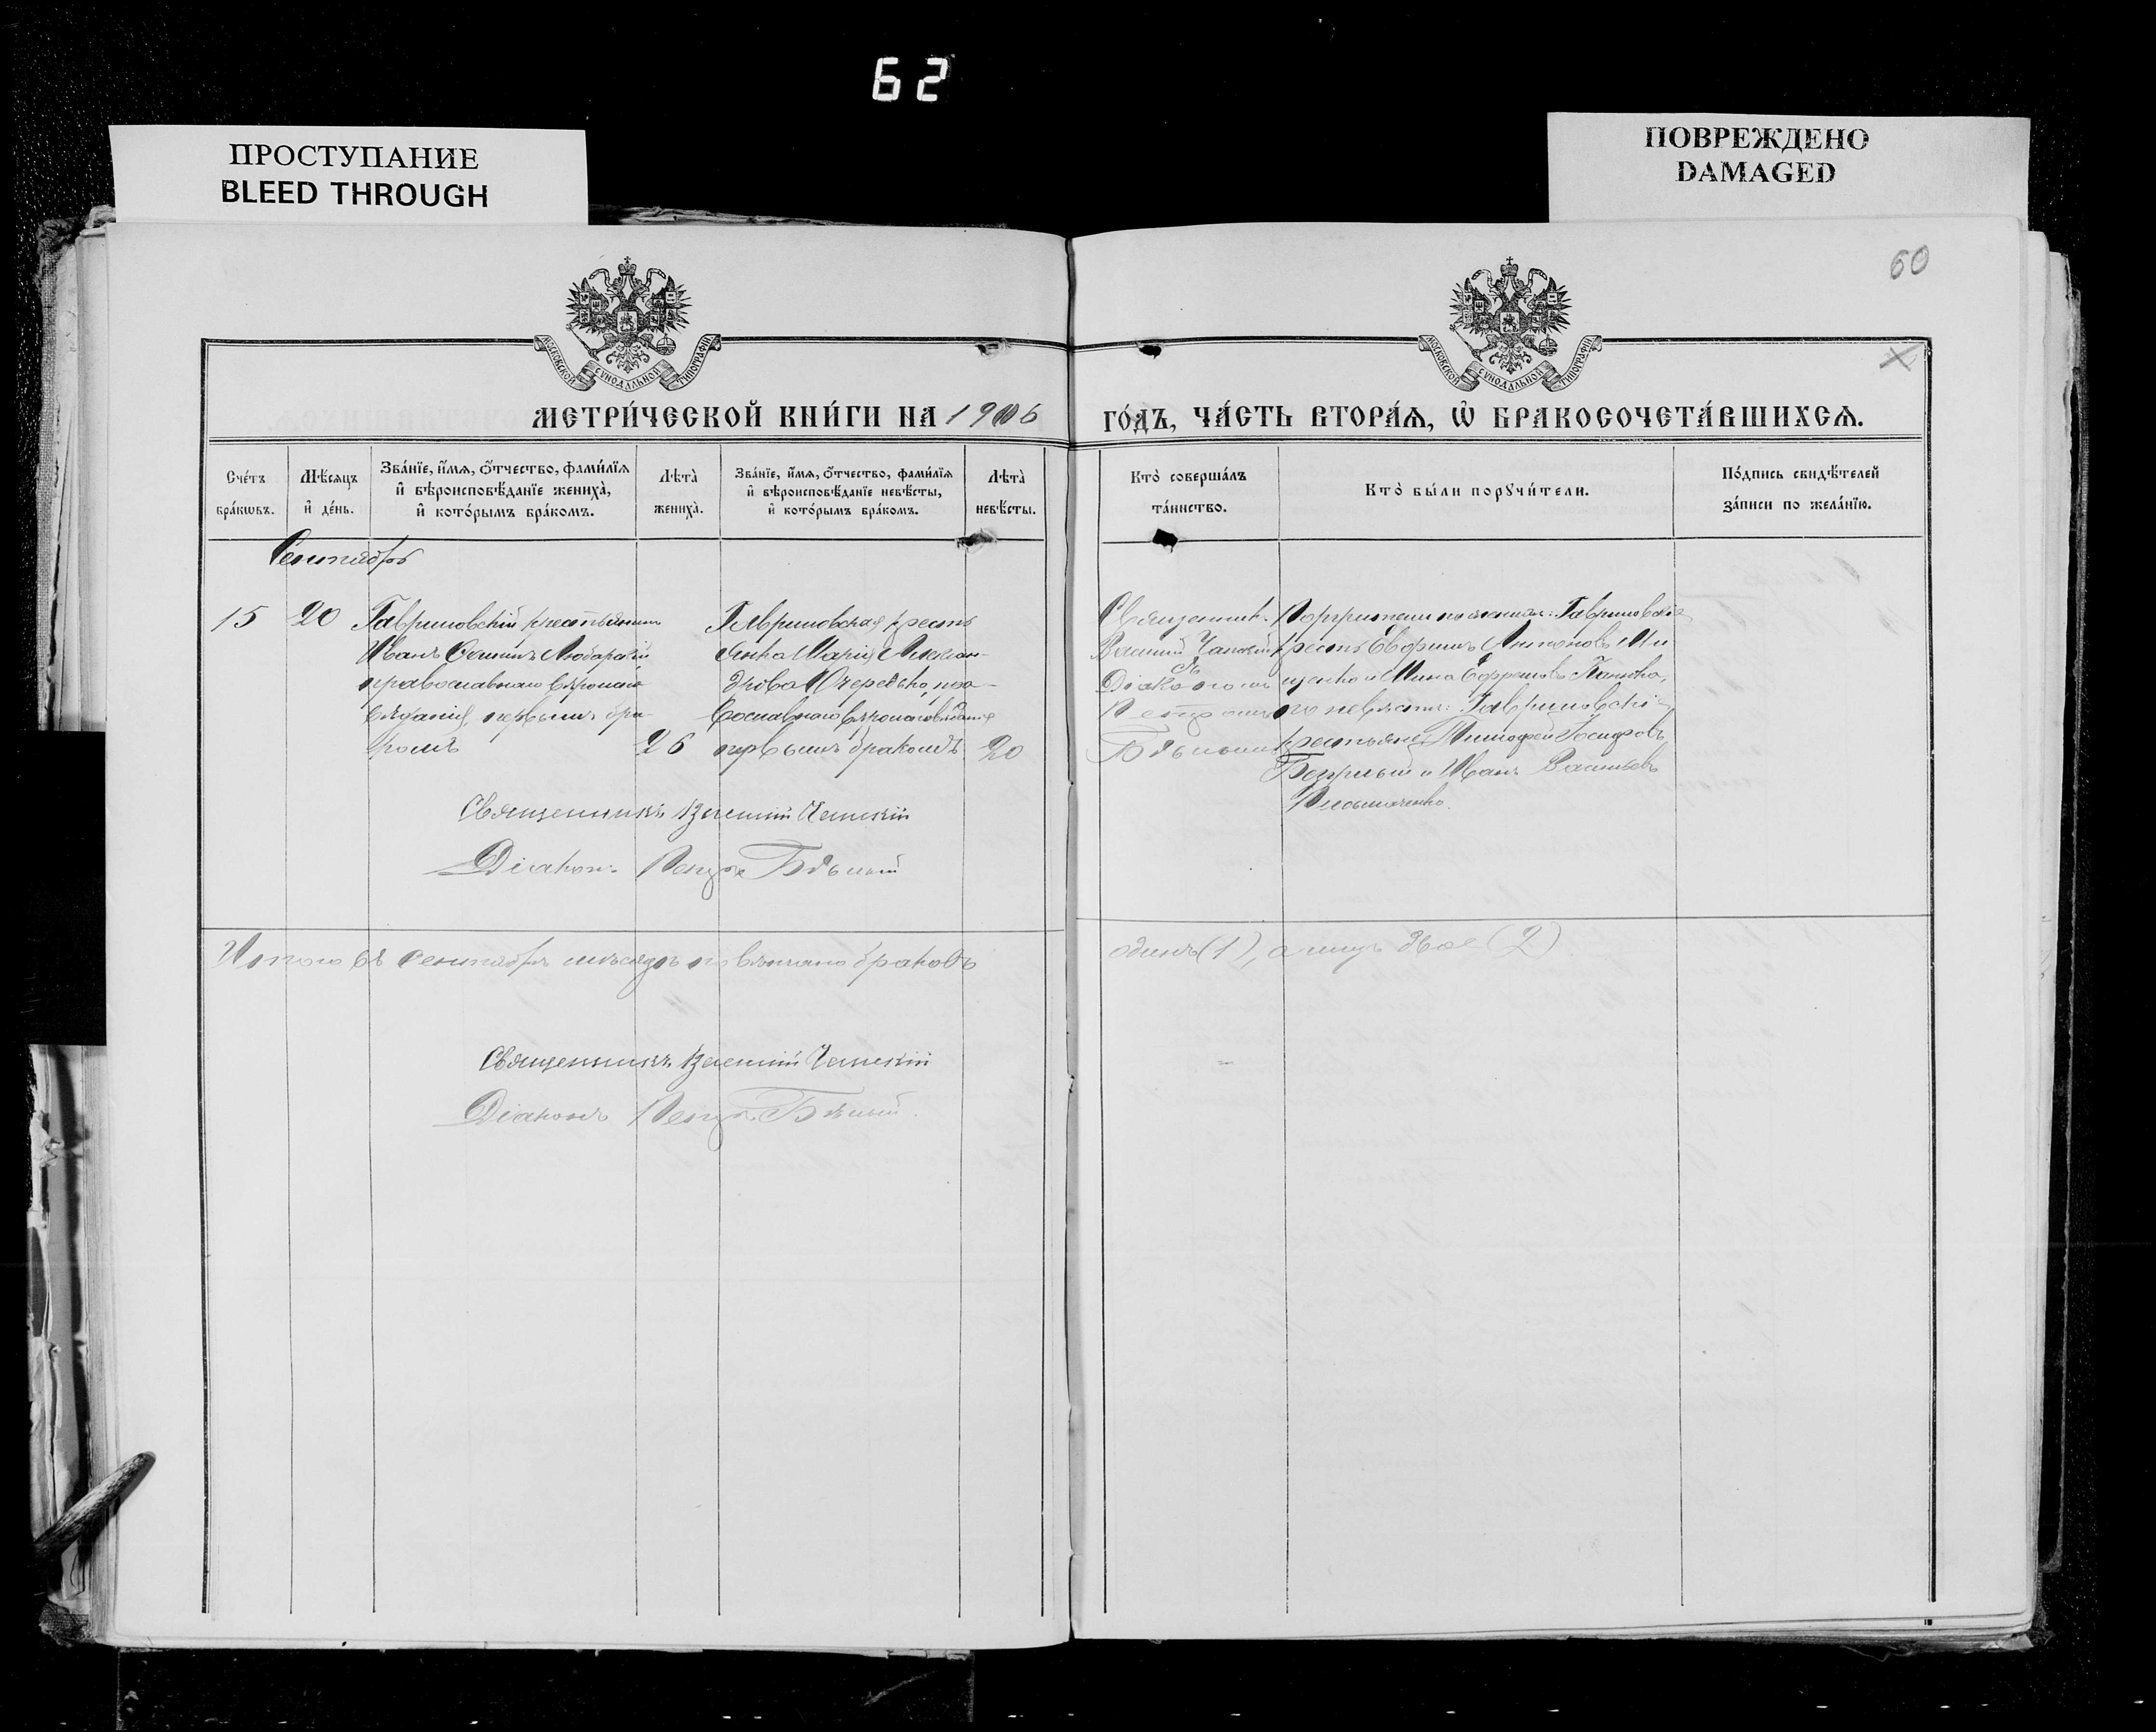 62
ПРОСТУПАНИЕ
BLEED THROUGH
ПОВРЕЖДЕНО
DAMAGED
60
МОСКОВСКОЙ СѴНОДАЛЬНОЙ ТИПОГРАФІИ
МОСКОВСКОЙ СѴНОДАЛЬНОЙ ТИПОГРАФІИ
МЕТРИ́ЧЕСКОЙ КНИ́ГИ НА 1906
ГО́ДЪ, ЧА́СТЬ ВТОРА́Ѧ, Ѡ҆ БРАКОСОЧЕТА́ВШИХСѦ.
Сче́тъ бра́кѡвъ.
Мѣ́сѧцъ и҆ де́нь.
Зва́нїе, и҆́мѧ, ѻ҆́тчество, фами́лїѧ
и҆ вѣроисповѣ́данїе жениха̀,
и҆ кото́рымъ бра́комъ.
Лѣта̀ жениха̀.
Зва́нїе, и҆́мѧ, ѻ҆́тчество, фами́лїѧ
и҆ вѣроисповѣ́данїе невѣ́сты,
и҆ кото́рымъ бра́комъ.
Лѣта̀ невѣ́сты.
Кто̀ соверша́лъ
та́инство.
Кто̀ бы́ли порꙋчи́тели.
По́дпись свидѣ́телей
за́писи по жела́нїю.
Сентябрь
15
20
Гавриловскій крестьянинъ
Иванъ Любарскій
православнаго вѣроиспо-
вѣданія, первымъ бра-
комъ
26
Гавриловская кресть
янка Марія Алексан-
дрова Чередько, пра-
вославнаго вѣроисповѣданія
первымъ бракомъ
20
Священникъ
Василій Чапскій
съ
Діакономъ
Петромъ
Бѣлымъ
Поручители по женихѣ: Гавриловскіе
крест. Антоновъ Ми
щенко и Мина Панивко,
по невѣстѣ: Гавриловскіе
крестьяне Тимофей Іосифовъ
и Иванъ Васильевъ
Священникъ Василій Чапскій
Діаконъ Петръ Бѣлый
Итого въ сентябрѣ мѣсяцѣ повѣнчано браковъ
одинъ (1), а лицъ двое (2)
Священникъ Василій Чапскій
Діаконъ Петръ Бѣлый.